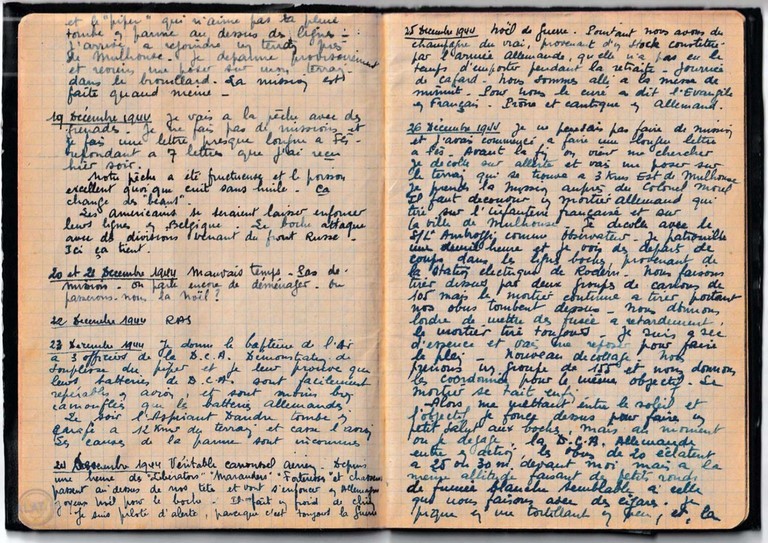 et le "piper" qui n'aime pas la pleine
tombe en panne au dessus des lignes -
J'arrive a rejoindre en tendu près
de Mulhouse. Je depanne provisoirement
et reviens me poser sur mon terrain
dans le brouillard. La mission est
faite quand meme -
19 Décembre 1944 Je vais a la pêche avec des
grenades. Je ne fais pas de missions et
je fais une lettre presque longue a Fés-
repondant a 7 lettres que j'ai reçu
hier soir.
Notre pêche a été fructueuse et le poisson
excellent quoi que cuit sans huile. Ça
change des "beans".
Les Americains se seraient laissé enfoncer
leurs lignes en Belgique - Le boche attaque
avec des divisions venant du front Russe -
Ici ça tient.
20 et 21 Decembre 1944 Mauvais temps - Pas de
mission - on parle encore de déménager - ou
passerons-nous la Noël ?
22 Decembre 1944 RAS
23 Decembre 1944 Je donne le baptême de l'Air
a 3 officiers de la D.C.A. Demonstration de
souplesse du piper et je leur prouve que
leurs batteries de D.C.A. sont facilement
repérables en avion, et sont moins bien
camouflées que les batteries allemandes.
Le soir l'Aspirant Dandre tombe en
a 12 Kms du terrain et casse l'avion
Les causes de la panne sont inconnues
24 Decembre 1944 Véritable carrousel aerien. Depuis
une heure des "Liberators" "Marauders" Forteresses et chasseurs
passent au dessus de nos tete et vont s'enfoncer en Allemagne
joyeux noël pour le boche - Il fait un froid de chien
Je suis pilote d'alerte, parceque c'est toujours la Guerre
25 Decembre 1944 Noël de Guerre. Pourtant nous avons du
champagne du vrai, provenant d'un stock constitué
par l'armée Allemande, qu'elle n'a pas eu le
temps d'emporter pendant la retraite - Journée
de cafard - Nous sommes allé a la messe de
minuit. Pour nous le curé a dit l'Evangile
en Français. Prône et cantique en Allemand.
26 Decembre 1944 Je ne pensais pas faire de mission
et j'avais commencé a faire une longue lettre
a Fés. Avant la fin on vient me chercher
Je decolle sur alerte et vais me poser sur
le terrain qui se trouve a 3 Kms Est de Mulhouse
Je prends la mission auprès du Colonel Morel
Il faut decouvrir un mortier allemand qui
tire sur l'infanterie française et sur
la ville de Mulhouse. Je decolle avec le
S/Lt comme observateur. Je patrouille
une demie heure et je vois des depart de
coups dans les lignes boches, provenant de
la station electrique de Rodern. Nous faisons
tirer dessus par deux groupes de canons de
105 mais le mortier continue a tirer, pourtant
nos obus tombent dessus - nous donnons
l'ordre de mettre des fusée a retardement,
le mortier tire toujours. Je suis a sec
d'essence et vais me reposer pour faire
le plein - Nouveau decollage. Nous
prenons un groupe de 155 et nous donnons
les coordonnées pour le même objectif. Le
mortier se tait enfin.
Alors me mettant entre le soleil et
l'objectif je fonce dessus pour faire un
petit salut aux boches mais au moment
ou je degage, la D.C.A. Allemande
entre en action. Les obus de 20 éclatent
a 25 ou 30 m. devant moi mais a la
meme altitude faisant de petits ronds
de fumée blanche semblable a celle
que nous faisons avec des cigares. Je
pique en me tortillant un peu, et la